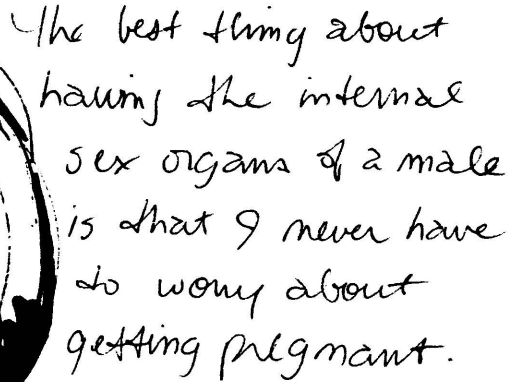 The best thing about
having the internal
sex organs of a male
is that I never have
to worry about
getting pregnant.